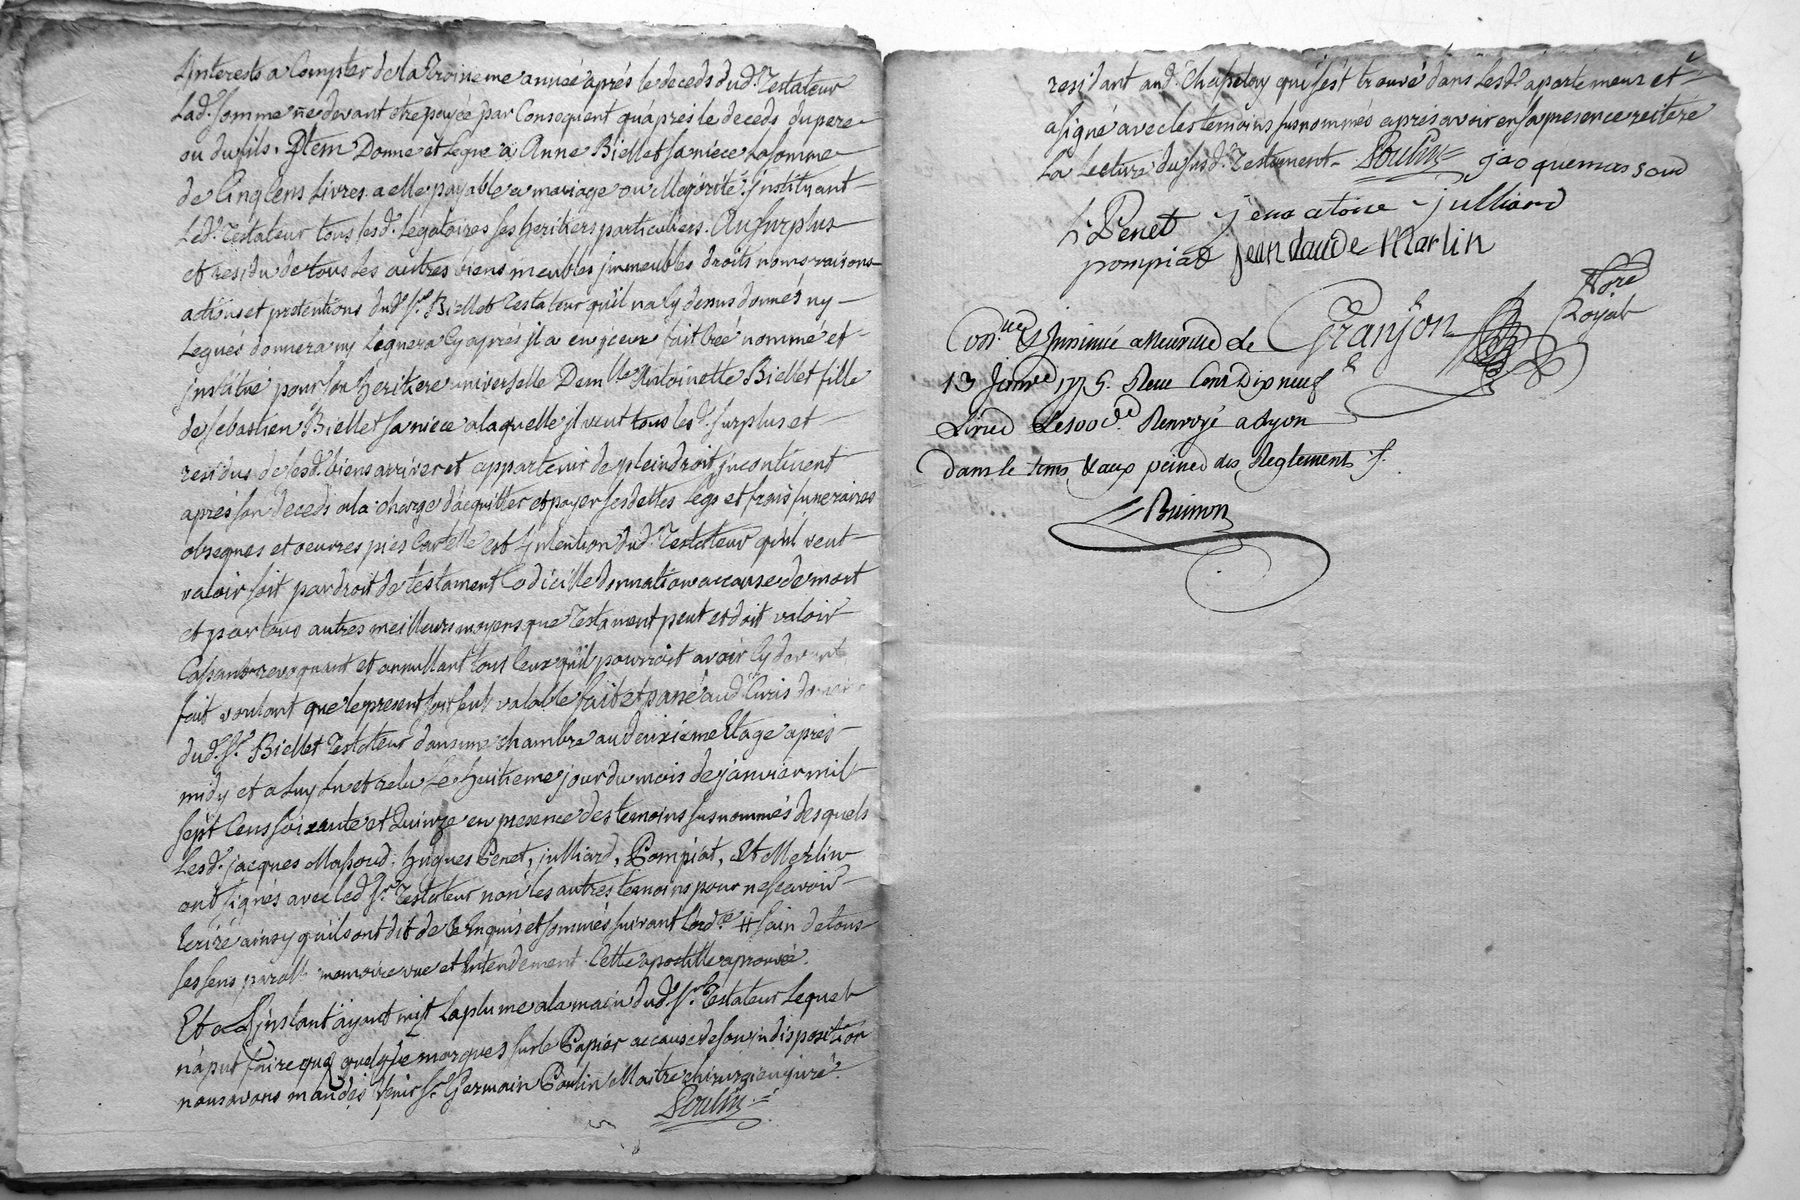 Linterests a Compter de la troisieme année aprés le deceds dud. Testateur
Lad. Somme ne devant etre payée par Consequent qu'aprés le deceds du pere
ou du fils. Item Donne et Legue a Anne Biellet sa niéce La somme
de Cinq Cens Livres a elle payable a mariage ou Majorité; instituant
Led. Testateur tous lesd. Legatoires ses heritiers particuliers. Au surplus
et residu de tous les autres biens meubles immeubles droits noms raisons
actions et pretentions dud. Sr. Biellet Testateur qu'il na cy dessus donnés ny
Legués donnera ny leguera cy aprés il a en iceux fait créé nommé et
institué pour son heritiere universelle Demlle Antoinette Biellet fille
de Sebastien Biellet sa niéce a laquelle il veut tous lesd. surplus et
residus de sesd. biens arriver et appartenir de plein droit incontinent
aprés son deceds a la charge d'acquitter et payer ses dettes legs et frais funeraires
obseques et oeuvres pies Car telle est L'intention dud. Testateur qu'il veut
valoir soit par droit de testament Codicille donnation a cause de mort
et par tous autres meilleurs moyens que Testament peut et doit valoir
Cassant revoquant et annullant tous Ceux qu'il pourroit avoir cy devant
fait voulant que le present soit seul valable fait et passé aud.
dud. Sr. Biellet Testateur dans une chambre au deuxiéme Etage aprés
midy et a Luy Lu et relu Le huitieme jour du mois de janvier mil
sept Cens soixante et Quinze en presence des temoins susnommés desquels
Lesd. jacques Massoud, hugues Penet, julliard, Pompiat, Et Merlin
ont signés avec led. Sr. Testateur non les autres temoins pour ne scavoir
Ecrire ainsy qu'ils ont dit de ce Enquis et sommés suivant Lord.ce # sain de tous
ses sens parolle memoire vue et Entendement. Cette apostille aprouvée.
Et a L'instant ayant mit la plume a la main dud. Sr. Testateur Lequel
n'a put faire que quelque marques sur le Papier a cause de son indisposition
nous avons mandés venir Sr. Germain Poulin Maitre chirurgien juré
Poulin
residant aud. Chapelay qui s'est trouvé dans lesd. apartemens et
a signé avec les temoins susnommés aprés avoir en sa presence reiteré
La Lecture du susd. Testament. Poulin jacque massoud
h Penet julliard
pompiat jean claude Marlin
Granjon Nore Royal
Con. & Insinué a Neuville Le
13 Janv. 1775. Reçu Cent Dix neuf
Livres Les 00 d. Renvoyé a Lyon
dans le tems & aux peines des Reglements
Buisson